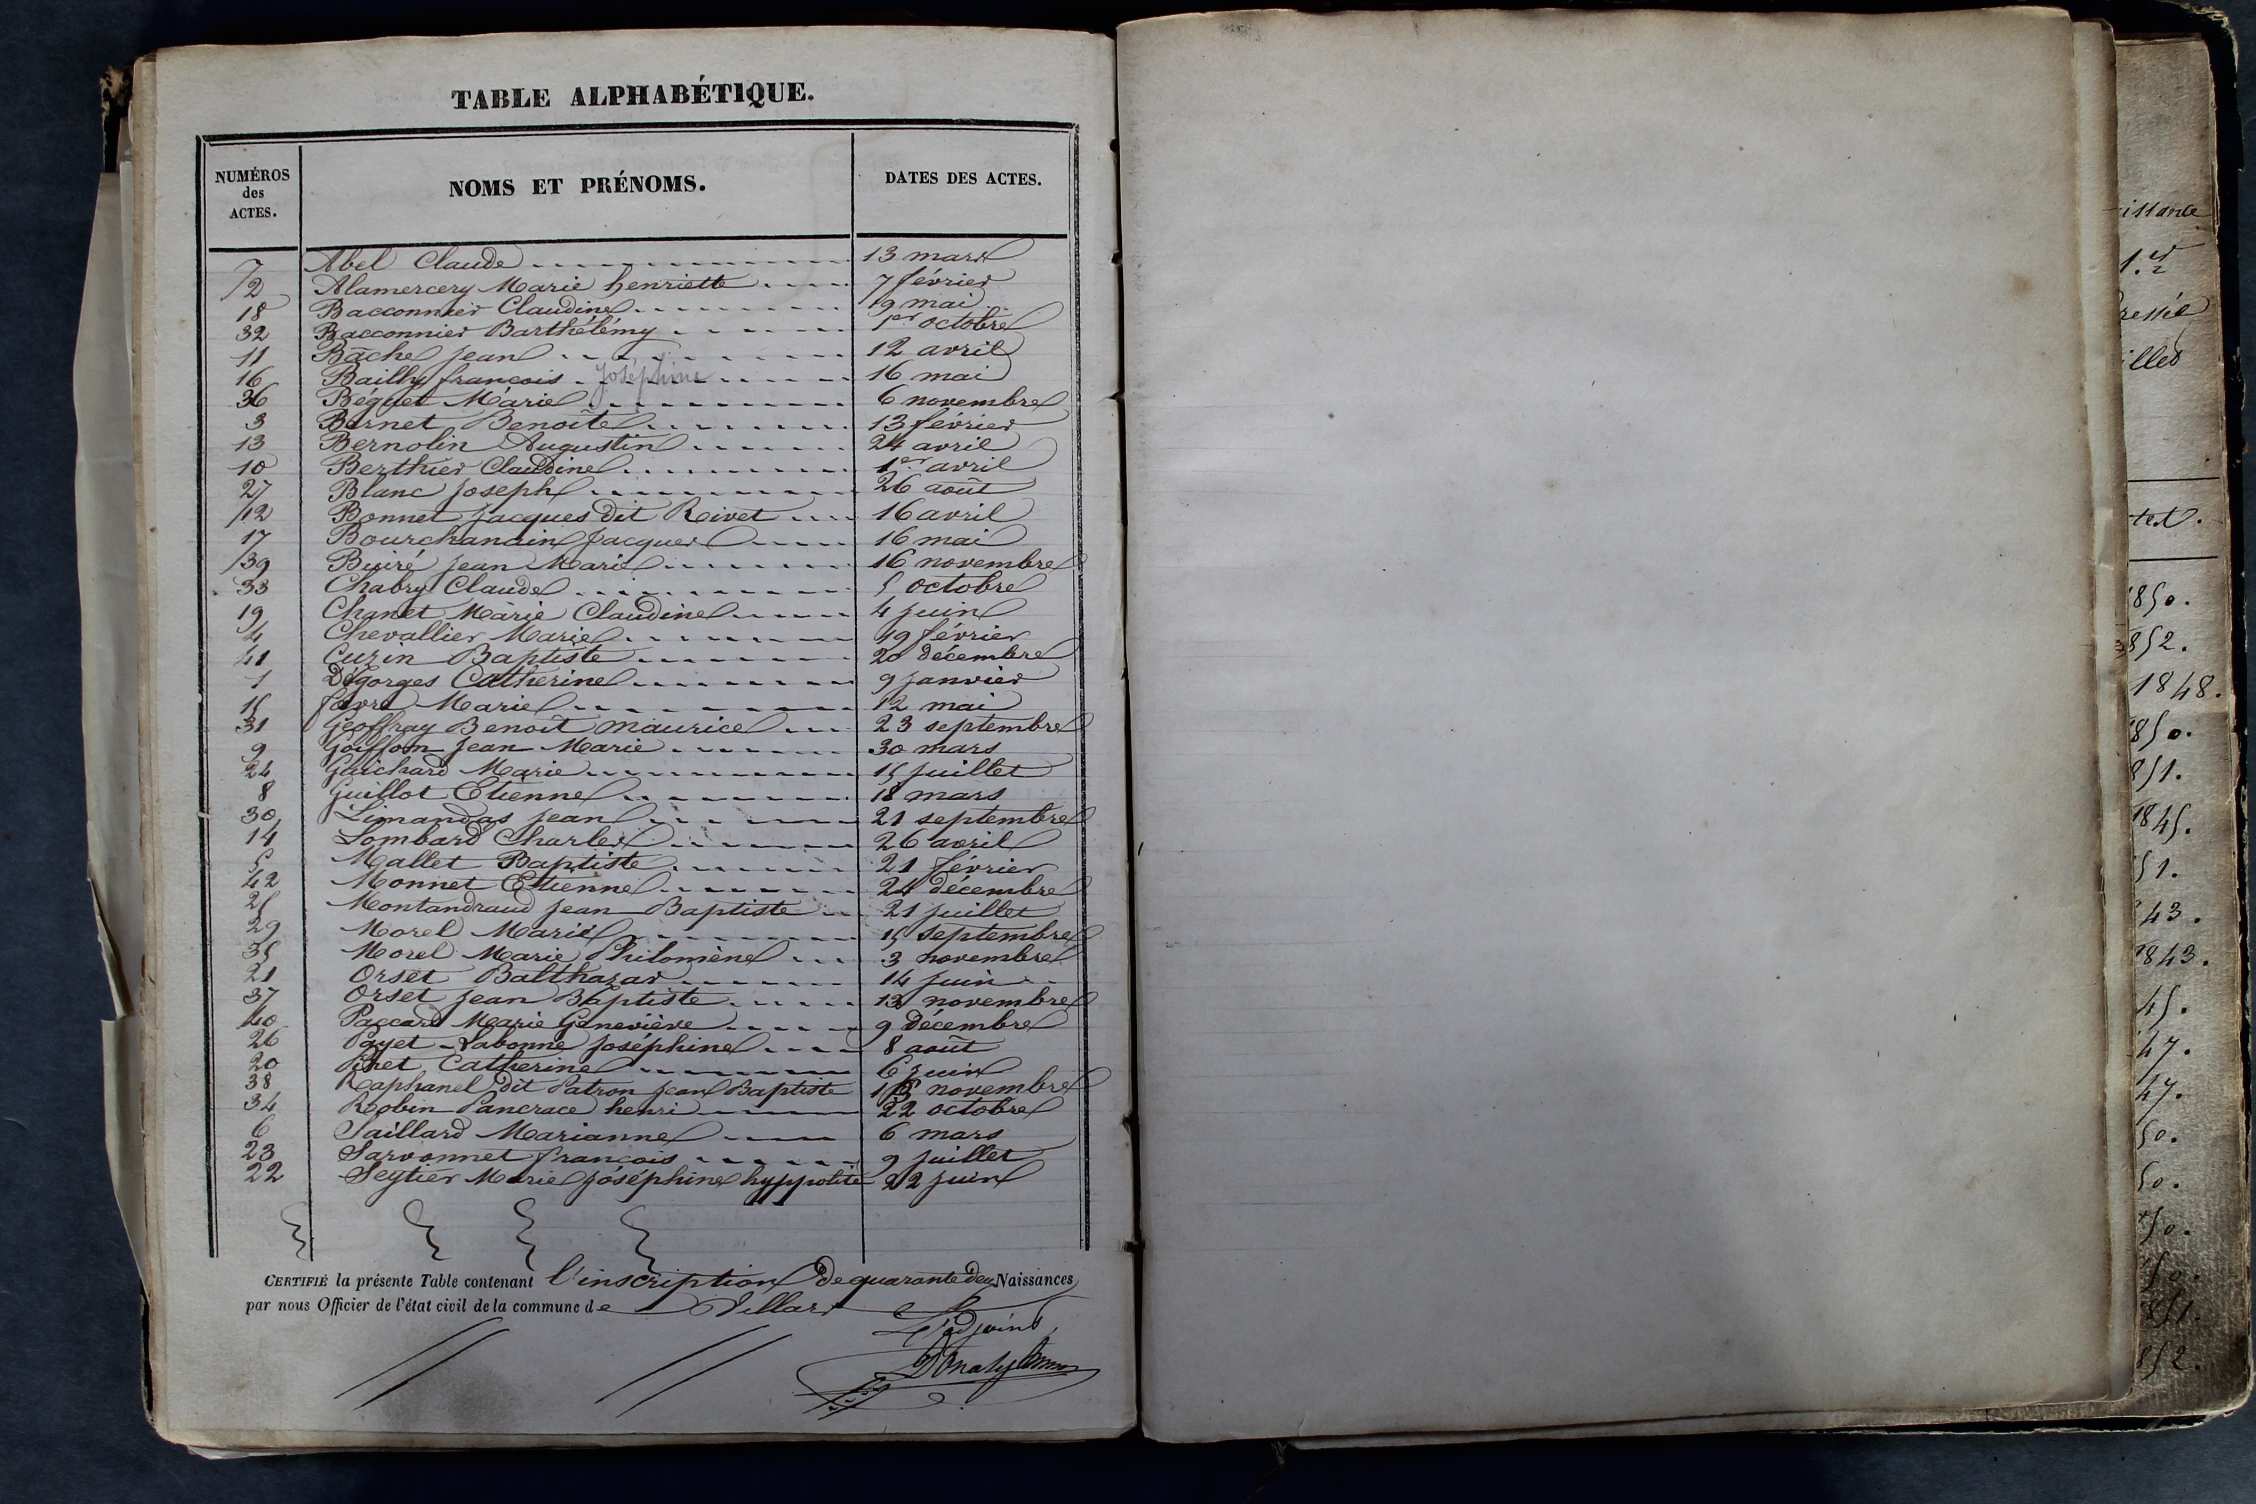 TABLE ALPHABÉTIQUE.
NUMÉROS des ACTES. NOMS ET PRÉNOMS. DATES DES ACTES.
7 Abel Claude 13 mars
2 Alamercery Marie henriette 7 février
18 Bacconnier Claudine 19 mai
32 Bacconnier Barthélémy 1er octobre
11 Bâche Jean 12 avril
16 Bailly françois 16 mai
Joséphine
36 Béguet Marie 6 novembre
3 Bernet Benoîte 13 février
13 Bernolin Augustin 24 avril
10 Berthier Claudine 1er avril
27 Blanc Joseph 26 août
12 Bonnet Jacques dit Rivet 16 avril
17 Bourchanain Jacques 16 mai
39 Jean Marie 16 novembre
33 Chabry Claude 5 octobre
19 Chanet Marie Claudine 4 juin
4 Chevallier Marie 19 février
41 Cuzin Baptiste 20 décembre
1 Dégorges Catherine 9 janvier
15 favre Marie 12 mai
31 Geoffray Benoît maurice 23 septembre
9 Goiffon Jean Marie 30 mars
24 Guichard Marie 15 juillet
8 Guillot Etienne 18 mars
30 Limandas Jean 21 septembre
14 Lombard Charles 26 avril
5 Mallet Baptiste 21 février
42 Monnet Etienne 24 décembre
25 Montandraud Jean Baptiste 21 juillet
29 Morel Marie 15 septembre
35 Morel Marie Philomène 3 novembre
21 Orset Balthazar 14 juin
37 Orset Jean Baptiste 13 novembre
40 Paccard Marie Geneviève 9 décembre
26 Payet-Labonne Joséphine 8 août
20 Pinet Catherine 6 juin
38 Raphanel dit Patron Jean Baptiste novembre
34 Robin Pancrace henri 22 octobre
6 Saillard Marianne 6 mars
23 Sarvonnet françois 9 juillet
22 Seytier Marie Joséphine hyppolite 22 juin
CERTIFIÉ la présente Table contenant l'inscription de quarante deux Naissances
par nous Officier de l'état civil de la commune de Villars
L'adjoint
1850.
1852.
1848.
1850.
851.
1845.
51.
43.
1843.
45.
47.
47.
50.
50.
50.
50.
851.
852.